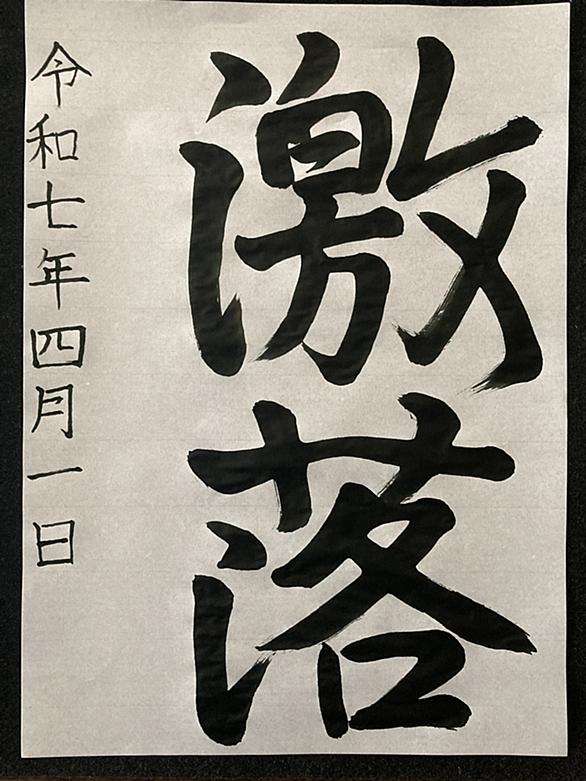 激落
令和七年四月一日